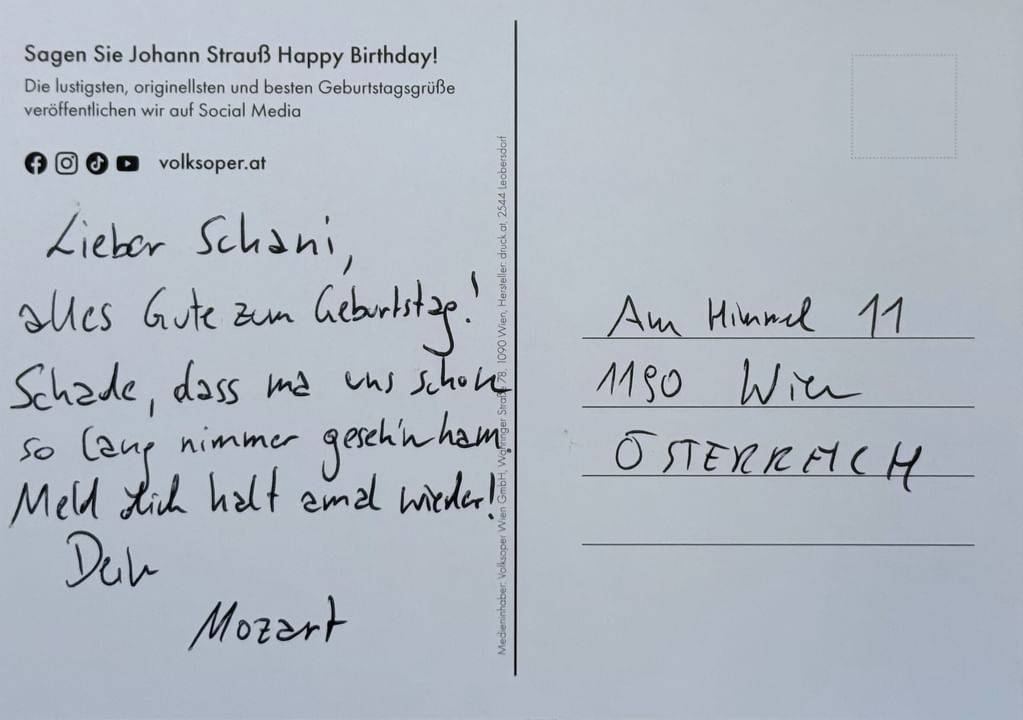 Sagen Sie Johann Strauß Happy Birthday!
Die lustigsten, originellsten und besten Geburtstagsgrüße
veröffentlichen wir auf Social Media
volksoper.at
Lieber Schani,
alles Gute zum Geburtstag!
Schade, dass ma uns schon
so lang nimmer geseh'n ham.
Meld dich halt amal wieder!
Dein
Mozart
Medieninhaber: Volksoper Wien GmbH, Währinger Straße 78, 1090 Wien, Hersteller: druck.at, 2544 Leobersdorf
Am Himmel 11
1190 Wien
ÖSTERREICH